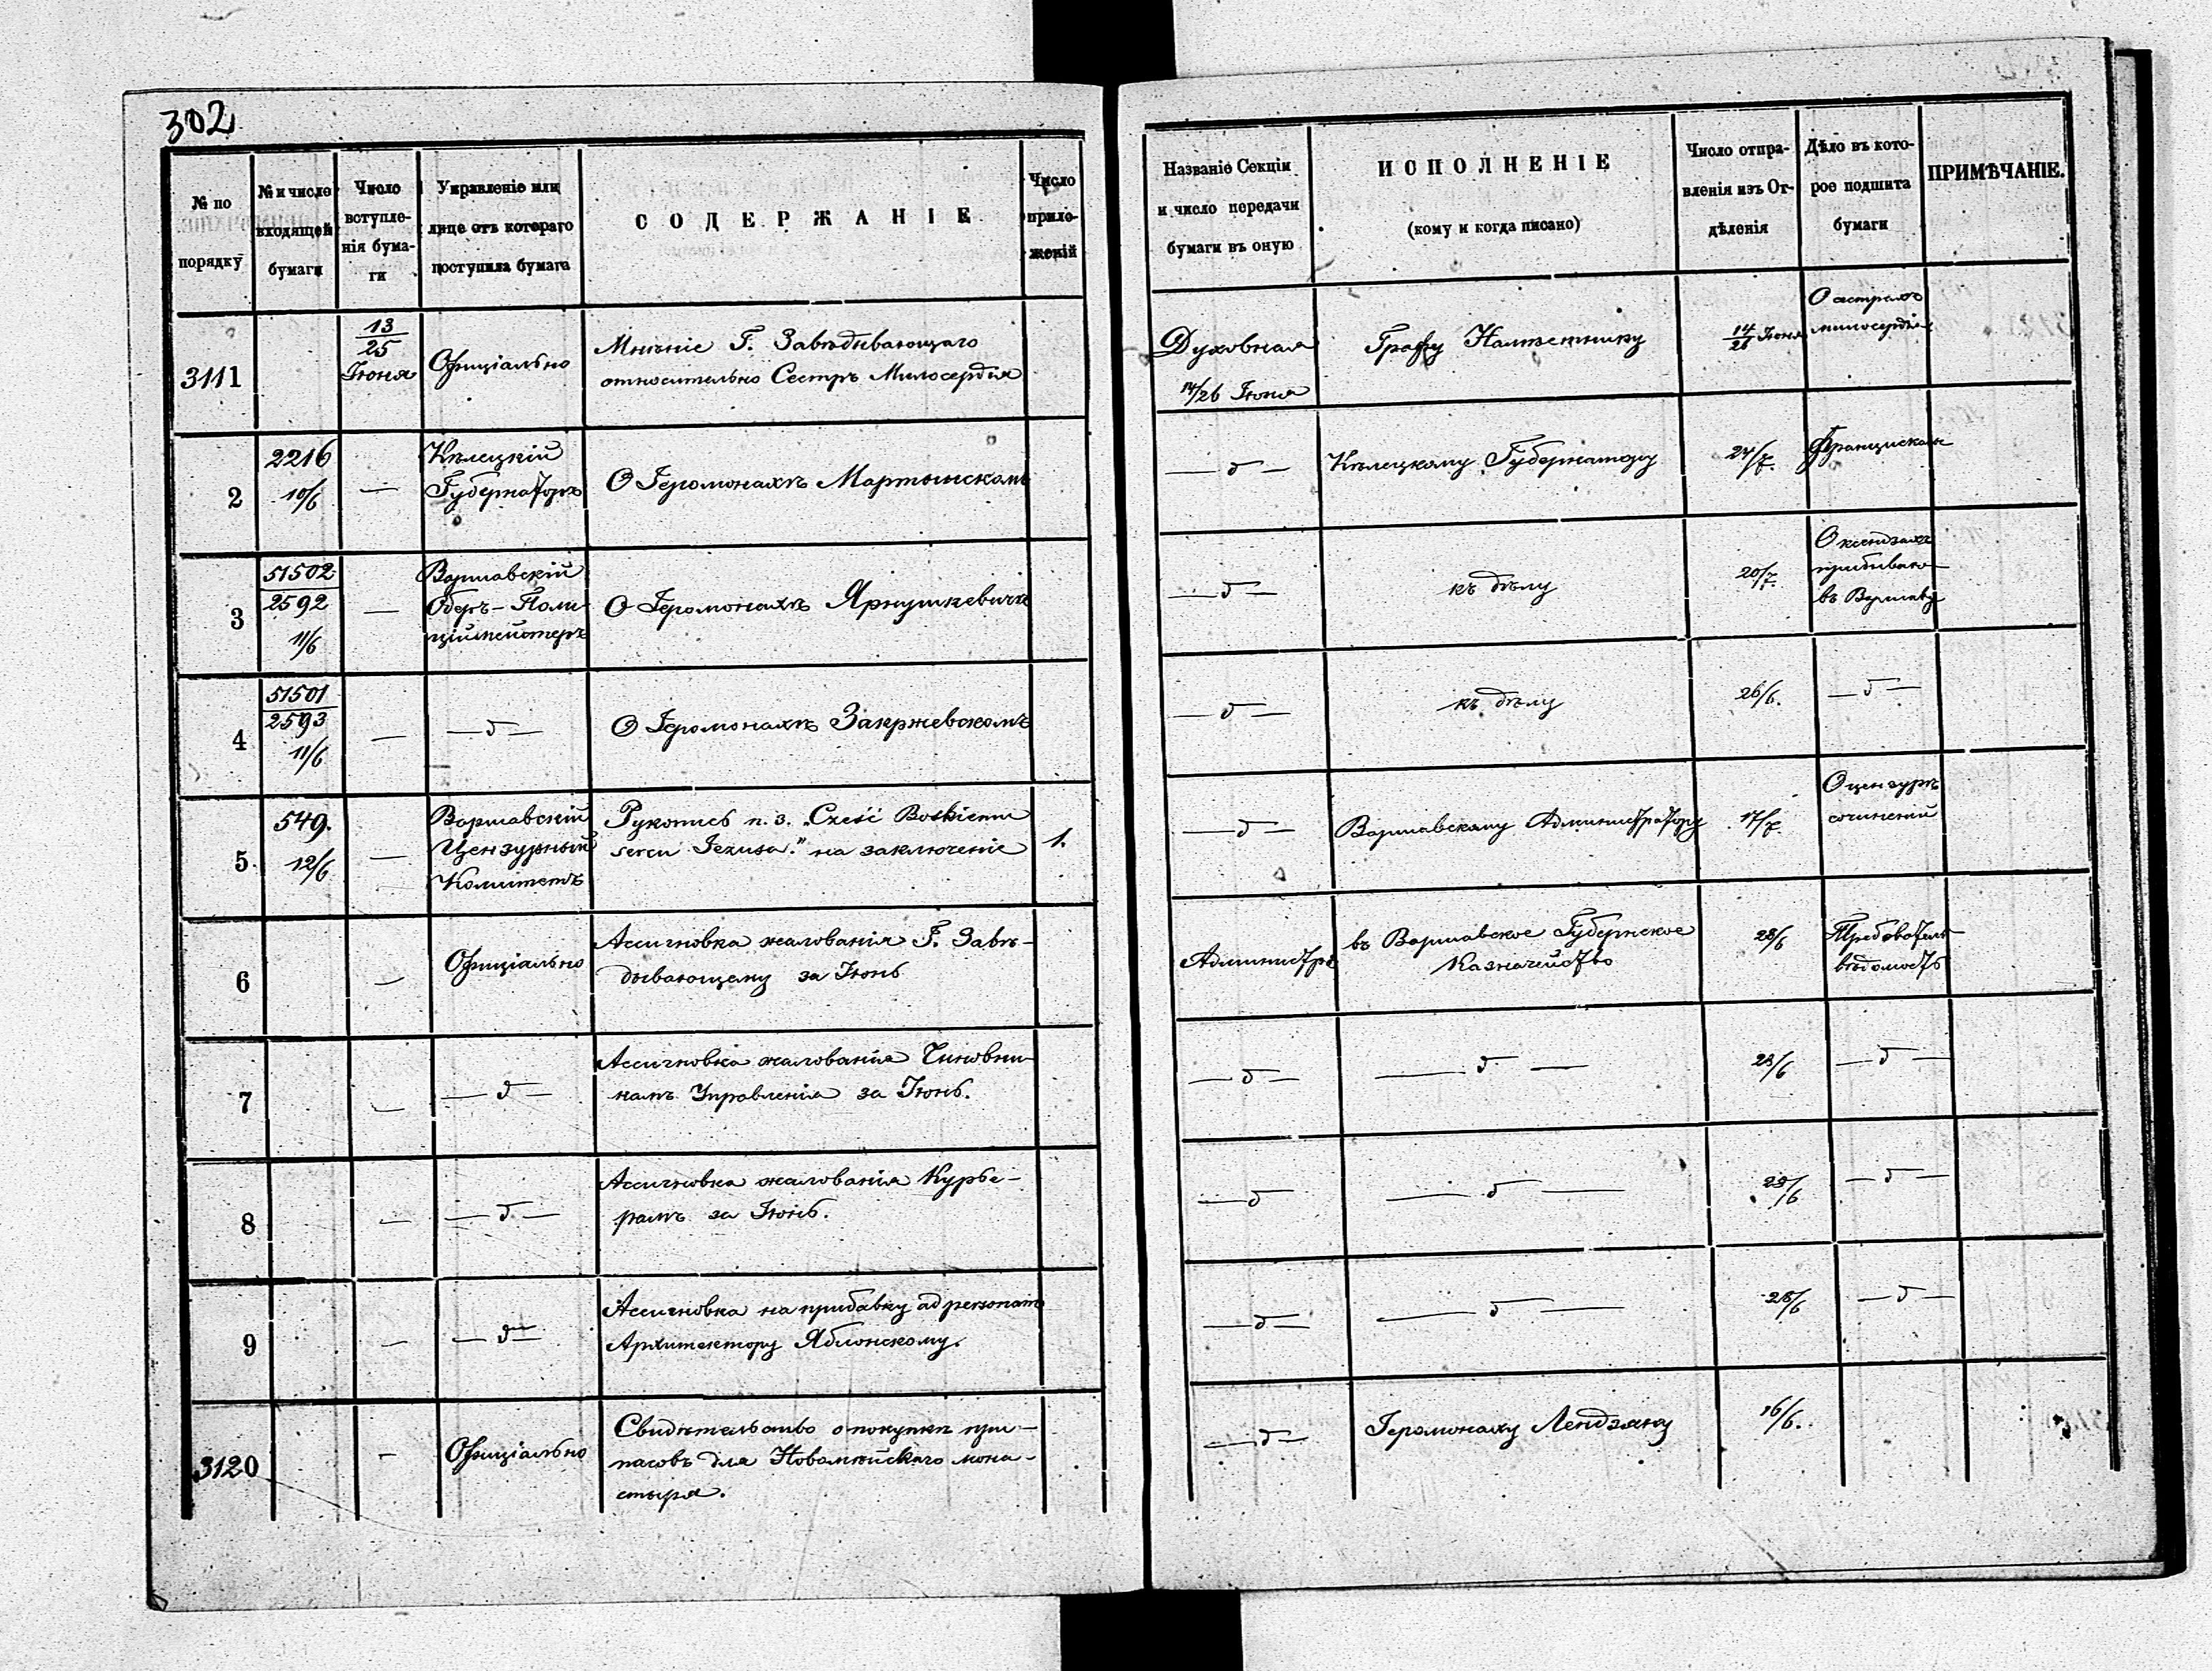 302
№ по порядку
№ и число входящей бумаги
Число вступленія бумаги
Управленіе или лице отъ котораго поступила бумага
СОДЕРЖАНІЕ
Число приложеній
Названіе Секціи и число передачи бумаги въ оную
ИСПОЛНЕНІЕ
(кому и когда писано)
Число отправленія изъ Отдѣленія
Дѣло въ которое подшита бумаги
ПРИМѢЧАНІЕ.
3111
13/25 Іюня
Офиціально
Мнѣніе Г. Завѣдывающаго
относительно Сестръ Милосердія
Духовная
14/26 Іюня
Графу Намѣстнику
14/26 Іюня
О сестрахъ
милосердія
2
2216
10/6
—
Кѣлецкій
Губернаторъ
О Іеромонахѣ Мартынскомъ
— д —
Кѣлецкому Губернатору
24/7.
Францискане
3
51502
2592
11/6
—
Варшавскій
Оберъ-Поли-
ційместеръ
О Іеромонахѣ Ярнушкевичѣ
— д —
къ дѣлу
20/7.
О ксендзахъ
прибываю-
въ Варшаву
4
51501
2593
11/6
—
— д —
О Іеромонахѣ Закржевскомъ
— д —
къ дѣлу
26/6.
— д —
5.
549.
12/6
—
Варшавскій
Цензурный
Комитетъ
Рукопись п. з. „Cześć Boskiemu
sercu Jezusa." на заключеніе
1.
— д —
Варшавскому Администратору
17/7.
О цензурѣ
сочиненій
6
—
Офиціально
Ассигновка жалованія Г. Завѣ-
дывающему за Іюнь
Администр.
въ Варшавское Губернское
Казначейство
28/6
Требователь-
вѣдомость
7
—
— д —
Ассигновка жалованія Чиновни-
камъ Управленія за Іюнь.
— д —
— д —
28/6
— д —
8
—
— д —
Ассигновка жалованія Курье-
рамъ за Іюнь.
— д
— д —
28/6
— д —
9
—
— д —
Ассигновка на прибавку ad personam
Архитектору Яблонскому.
— д —
— д —
28/6
— д —
3120
—
Офиціально
Свидѣтельство о покупкѣ при-
пасовъ для Новомѣйскаго мона-
стыря.
— д —
Іеромонаху Лендзяну
16/6.